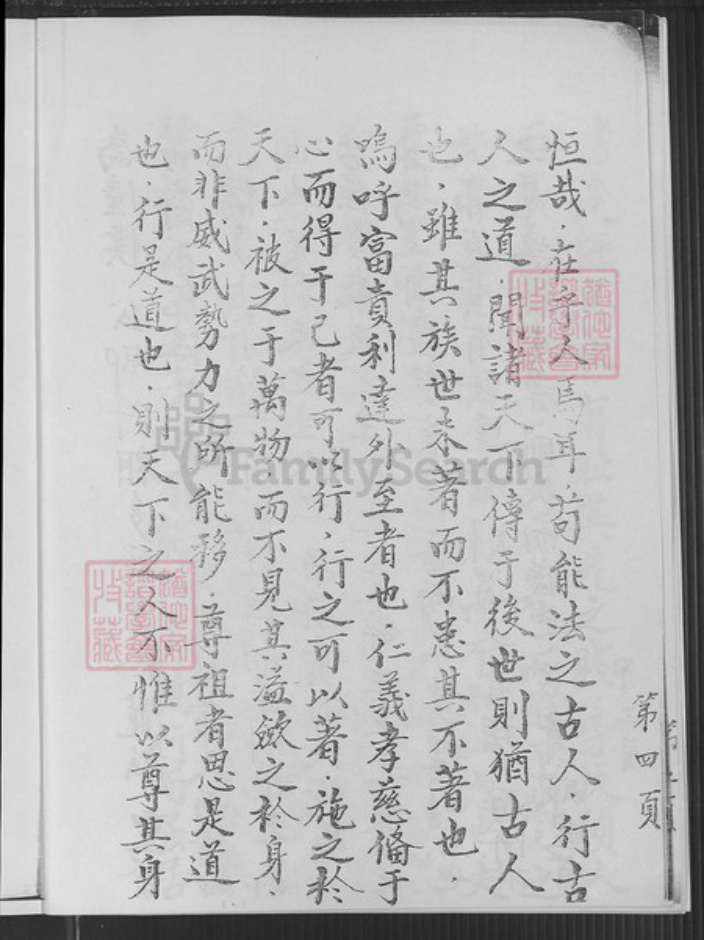 恒哉．在乎人焉耳．苟能法之古人．行古
人之道．聞諸天下傳于後世則猶古人
也．雖其族世未著而不患其不著也．
嗚呼富貴利達外至者也．仁義孝慈備于
心而得于己者可以行．行之可以著．施之於
天下．被之于萬物．而不見其溢斂之於身．
而非威武勢力之所能移．尊祖者思是道
也．行是道也．則天下之人不惟以尊其身
第四頁
FamilySearch